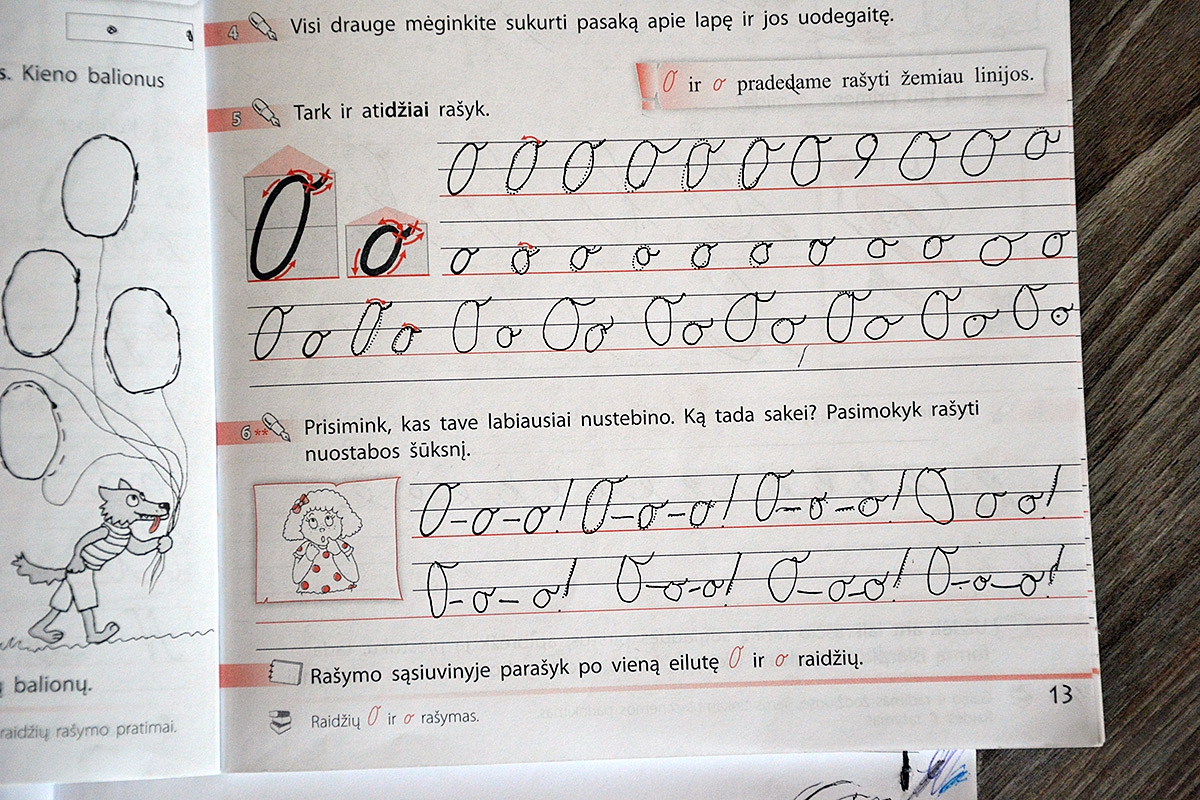 s. Kieno balionus
balionų.
raidžių rašymo pratimai.
4 Visi drauge mėginkite sukurti pasaką apie lapę ir jos uodegaitę.
O ir o pradedame rašyti žemiau linijos.
5 Tark ir atidžiai rašyk.
O o
O O O O O O O 9 O O o
o o o o o o o o o o o
O o O o O o O o O o O o O o O o O o
6** Prisimink, kas tave labiausiai nustebino. Ką tada sakei? Pasimokyk rašyti
nuostabos šūksnį.
O-o-o! O-o-o! O-o-o! O o o!
O-o-o! O-o-o! O-o-o! O-o-o!
Rašymo sąsiuvinyje parašyk po vieną eilutę O ir o raidžių.
13
Raidžių O ir o rašymas.